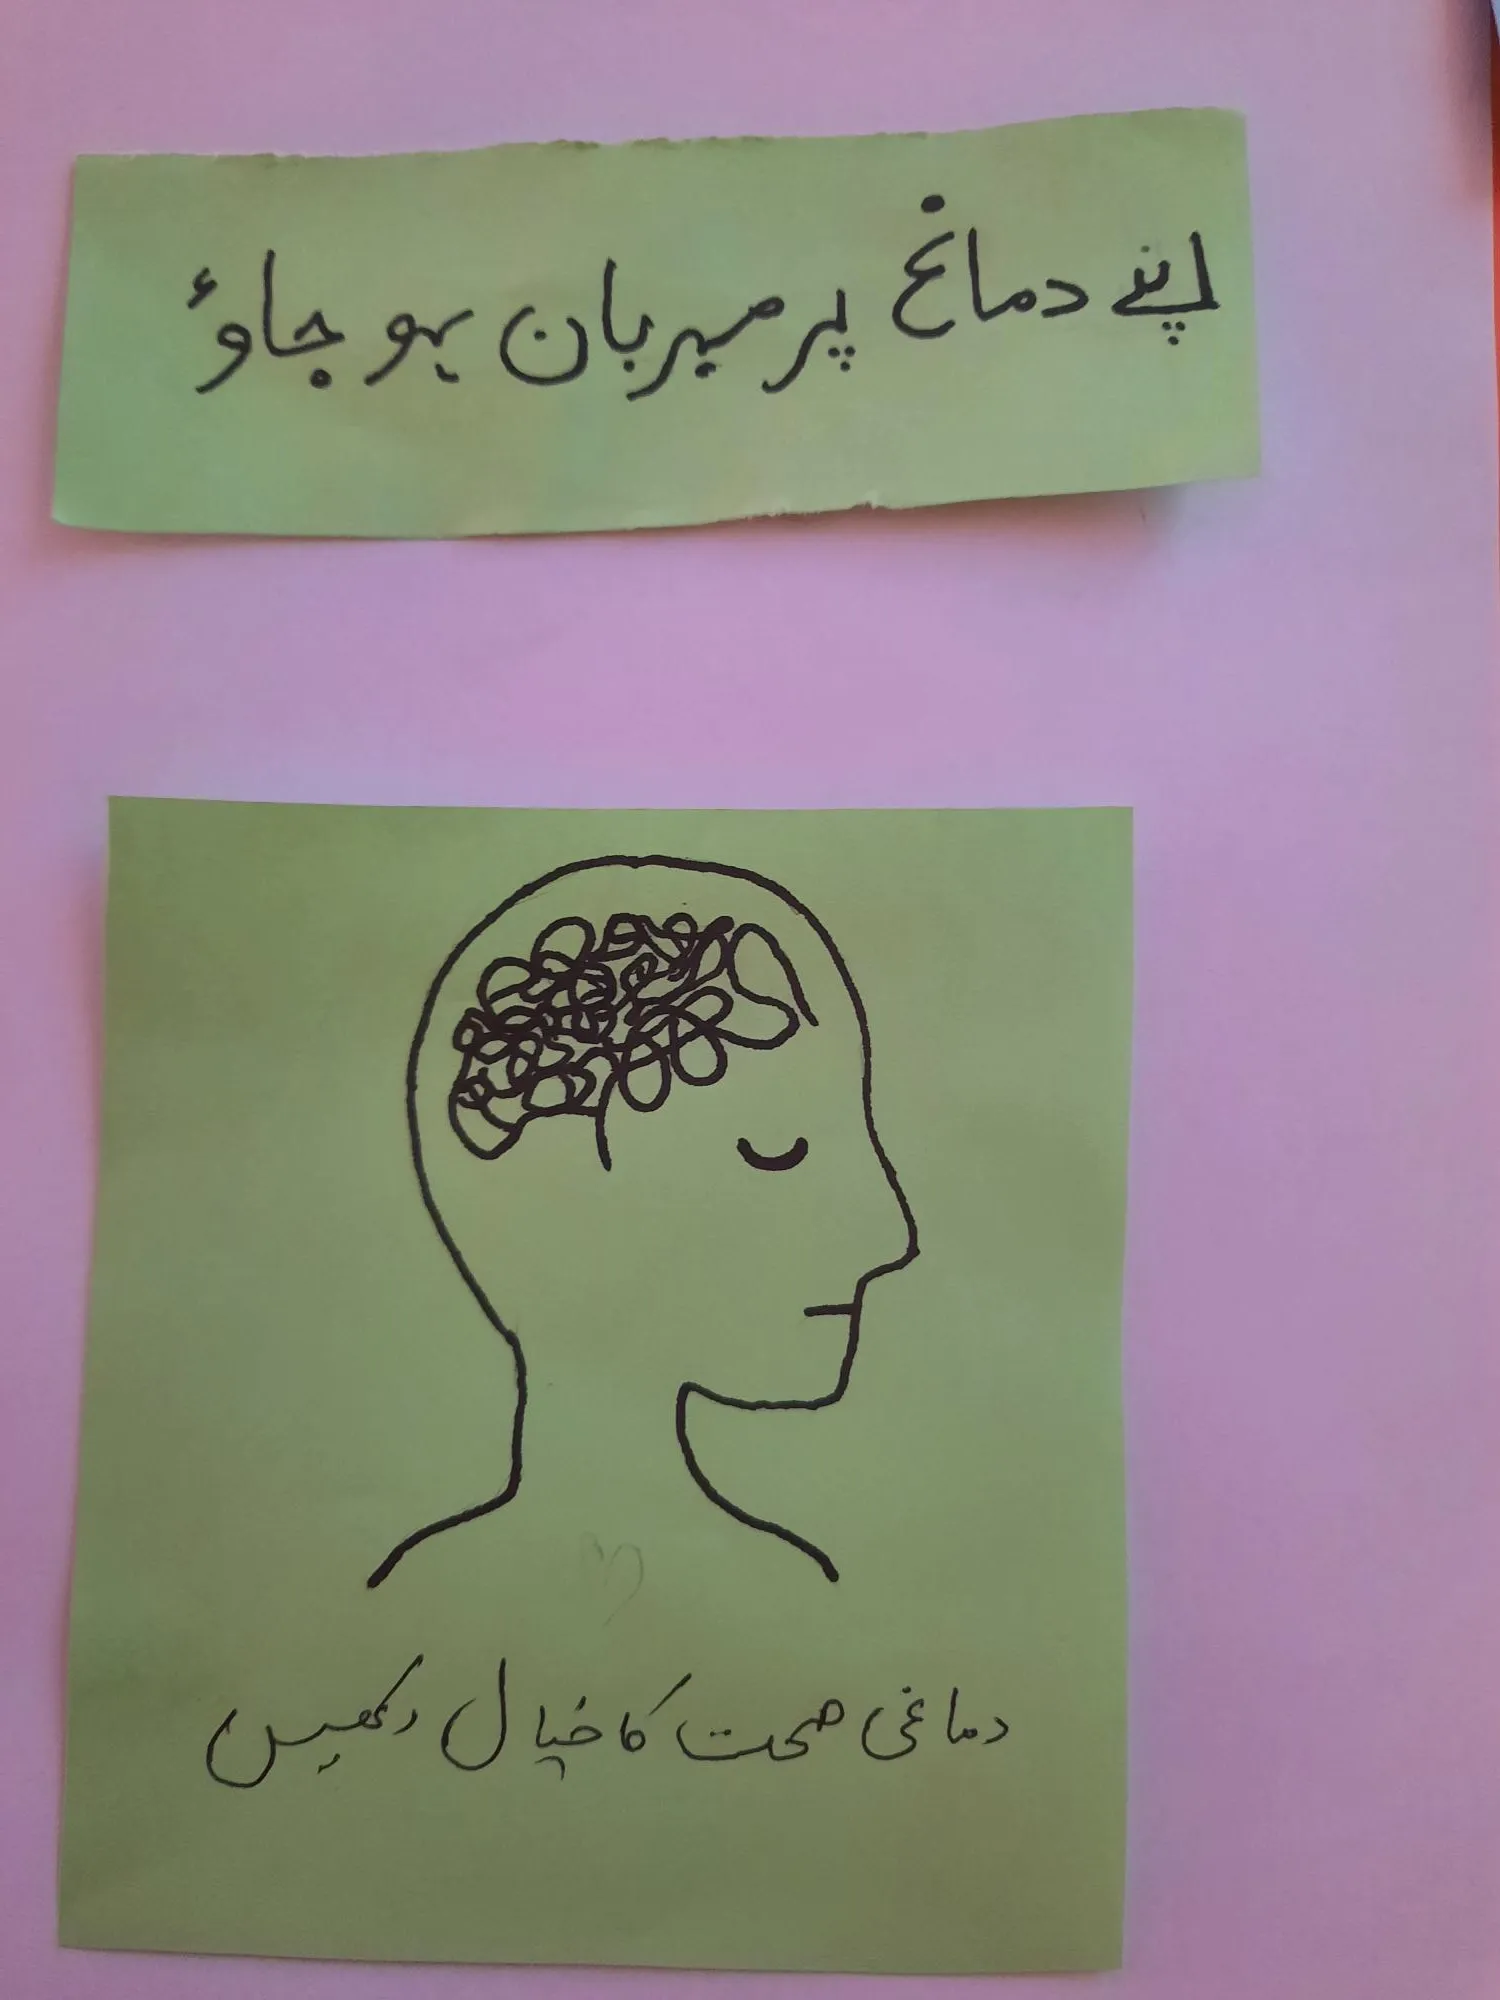 اپنے دماغ پر مہربان ہو جاؤ
دماغی صحت کا خیال رکھیں